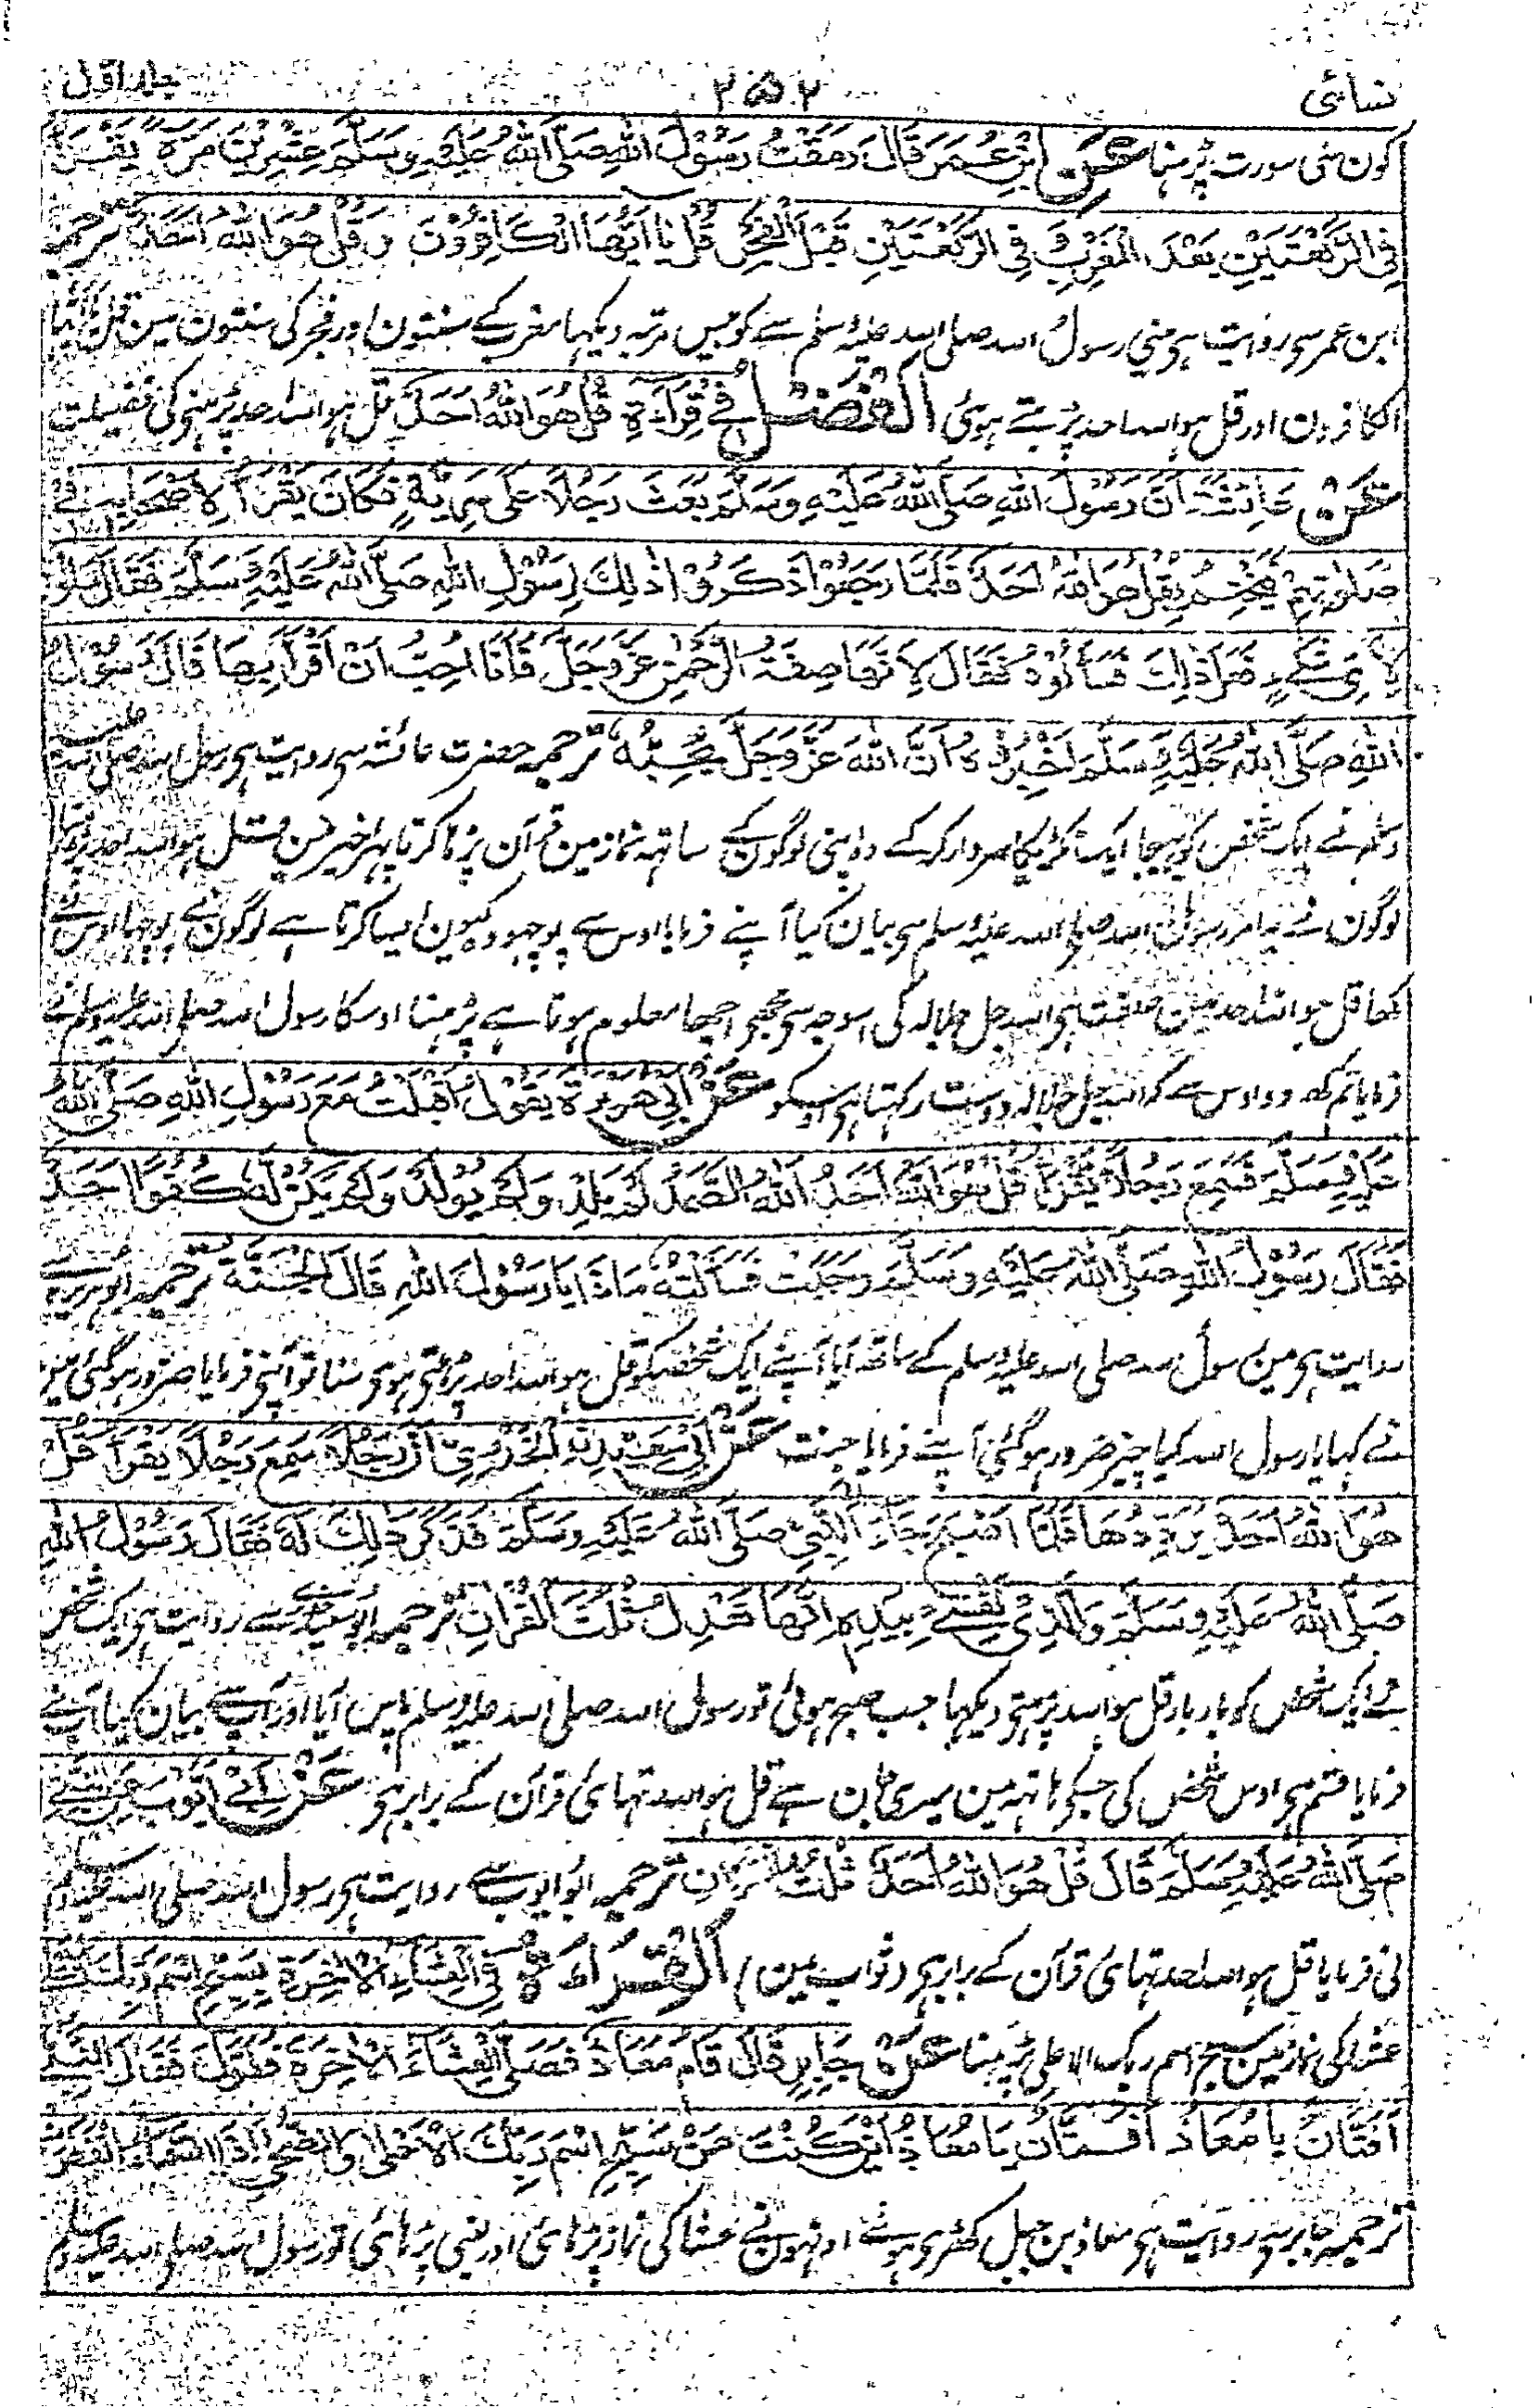 نسائی ۲۵۲ جلد اول
کون سی سورت پڑہنا عَنْ ابْنِ عُمَرَ قَالَ رَمَقْتُ رَسُوْلَ اللهِ صَلَّى اللهُ عَلَيْهِ وَسَلَّمَ عِشْرِيْنَ مَرَّةً يَقْرَأُ
فِی الرَّكْعَتَيْنِ بَعْدَ الْمَغْرِبِ وَفِی الرَّكْعَتَيْنِ قَبْلَ الْفَجْرِ قُلْ يَا اَيُّهَا الْكَافِرُوْنَ وَ قُلْ هُوَ اللهُ اَحَدٌ ترجمہ
ابن عمر سی روایت ہی مینی رسول اللہ صلی اللہ علیہ وسلم کو بیس مرتبہ دیکہا مغرب کے سنتون اور فجر کی سنتون مین قل یا ایہا
الکافرون اور قل ہو اللہ احد پڑہتے ہوی اَلْفَضْلُ فِیْ قِرَاءَةِ قُلْ هُوَ اللهُ اَحَدٌ قل ہو اللہ احد پڑہنی کی فضیلت
عَنْ عَائِشَةَ اَنَّ رَسُوْلَ اللهِ صَلَّى اللهُ عَلَيْهِ وَسَلَّمَ بَعَثَ رَجُلًا عَلٰى سَرِيَّةٍ فَكَانَ يَقْرَأُ لِاَصْحَابِهٖ فِیْ
صَلٰوتِهِمْ فَيَخْتِمُ بِقُلْ هُوَ اللهُ اَحَدٌ فَلَمَّا رَجَعُوْا ذَكَرُوْا ذٰلِكَ لِرَسُوْلِ اللهِ صَلَّى اللهُ عَلَيْهِ وَسَلَّمَ فَقَالَ سَلُوْهُ
لِاَیِّ شَیْءٍ فَعَلَ ذٰلِكَ فَسَاَلُوْهُ فَقَالَ لِاَنَّهَا صِفَةُ الرَّحْمٰنِ عَزَّ وَجَلَّ فَاَنَا اُحِبُّ اَنْ اَقْرَأَ بِهَا قَالَ رَسُوْلُ
اللهِ صَلَّى اللهُ عَلَيْهِ وَسَلَّمَ اَخْبِرُوْهُ اَنَّ اللهَ عَزَّ وَجَلَّ يُحِبُّهٗ ترجمہ حضرت عائشہ سی روایت ہی رسول اللہ صلی اللہ علیہ
وسلم نے ایک شخص کو بہیجا ایک ٹکڑیکا سردار کرکے وہ اپنی لوگون کے ساتہہ نماز مین قرآن پڑہا کرتا پہر اخیر مین قل ہو اللہ احد پڑہتا
لوگون نے یہ امر رسول اللہ صلی اللہ علیہ وسلم سی بیان کیا آپنے فرمایا اوس سے پوچہو وہ کیون ایسا کرتا ہے لوگون نے پوچہا اوس نے
کہا قل ہو اللہ احد مین صفت ہی اللہ جل جلالہ کی اسوجہ سی مجہی اچہا معلوم ہوتا ہے پڑہنا اوسکا رسول اللہ صلی اللہ علیہ وسلم نے
فرمایا تم کہہ دو اوس سے کہ اللہ جل جلالہ دوست رکہتا ہی اوسکو عَنْ اَبِیْ هُرَيْرَةَ يَقُوْلُ اَقْبَلْتُ مَعَ رَسُوْلِ اللهِ صَلَّى اللهُ
عَلَيْهِ وَسَلَّمَ فَسَمِعَ رَجُلًا يَقْرَأُ قُلْ هُوَ اللهُ اَحَدٌ اَللهُ الصَّمَدُ لَمْ يَلِدْ وَلَمْ يُوْلَدْ وَلَمْ يَكُنْ لَّهٗ كُفُوًا اَحَدٌ
فَقَالَ رَسُوْلُ اللهِ صَلَّى اللهُ عَلَيْهِ وَسَلَّمَ وَجَبَتْ فَسَاَلْتُهٗ مَاذَا يَا رَسُوْلَ اللهِ قَالَ الْجَنَّةُ ترجمہ ابو ہریرہ سے
روایت ہی مین رسول اللہ صلی اللہ علیہ وسلم کے ساتہہ آیا آپنے ایک شخص کو قل ہو اللہ احد پڑہتی ہوی سنا تو آپنی فرمایا ضرور ہوگئی مین
نے کہا یا رسول اللہ کیا چیز ضرور ہوگئی آپنے فرمایا جنت عَنْ اَبِیْ سَعِيْدِنِ الْخُدْرِیِّ اَنَّ رَجُلًا سَمِعَ رَجُلًا يَقْرَأُ قُلْ
هُوَ اللهُ اَحَدٌ يُرَدِّدُهَا فَلَمَّا اَصْبَحَ جَاءَ اِلَى النَّبِیِّ صَلَّى اللهُ عَلَيْهِ وَسَلَّمَ فَذَكَرَ ذٰلِكَ لَهٗ فَقَالَ رَسُوْلُ اللهِ
صَلَّى اللهُ عَلَيْهِ وَسَلَّمَ وَالَّذِیْ نَفْسِیْ بِيَدِهٖ اِنَّهَا تَعْدِلُ ثُلُثَ الْقُرْاٰنِ ترجمہ ابو سعید سے روایت ہی ایک شخص
نے ایک شخص کو بار بار قل ہو اللہ پڑہتی دیکہا جب صبح ہوئی تو رسول اللہ صلی اللہ علیہ وسلم پاس آیا اور آپ سے بیان کیا آپنے
فرمایا قسم ہی اوس شخص کی جسکی ہاتہہ مین میری جان ہے قل ہو اللہ تہائی قرآن کے برابر ہی عَنْ اَبِیْ اَيُّوْبَ عَنِ النَّبِیِّ
صَلَّى اللهُ عَلَيْهِ وَسَلَّمَ قَالَ قُلْ هُوَ اللهُ اَحَدٌ ثُلُثُ الْقُرْاٰنِ ترجمہ ابو ایوب سے روایت ہی رسول اللہ صلی اللہ علیہ وسلم
نی فرمایا قل ہو اللہ احد تہائی قرآن کے برابر ہی (ثواب مین) اَلْقِرَاءَةُ فِی الْعِشَاءِ الْاٰخِرَةِ بِسَبِّحِ اسْمَ رَبِّكَ الْاَعْلٰى
عشا کی نماز مین سبح اسم ربک الاعلی پڑہنا عَنْ جَابِرٍ قَالَ قَامَ مُعَاذٌ فَصَلَّى الْعِشَاءَ الْاٰخِرَةَ فَطَوَّلَ فَقَالَ النَّبِیُّ
اَفَتَّانٌ يَا مُعَاذُ اَفَتَّانٌ يَا مُعَاذُ اَيْنَ كُنْتَ عَنْ سَبِّحِ اسْمَ رَبِّكَ الْاَعْلٰى وَالضُّحٰى وَاِذَا السَّمَاءُ انْفَطَرَتْ
ترجمہ جابر سی روایت ہی معاذ بن جبل کہڑی ہوئے اونہون نے عشا کی نماز پڑہائی اور لنبی پڑہائی تو رسول اللہ صلی اللہ علیہ وسلم